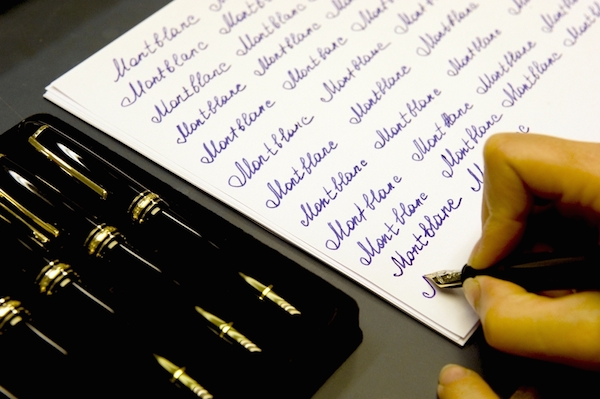 Montblanc Montblanc
Montblanc Montblanc
Montblanc Montblanc Montblanc
Montblanc Montblanc Montblanc
Montblanc Montblanc Montblanc
Montblanc Montblanc Montblanc
Montblanc Montblanc Montblanc
Montblanc Montblanc Montblanc
Montblanc Montblanc
Montblanc
Montblanc